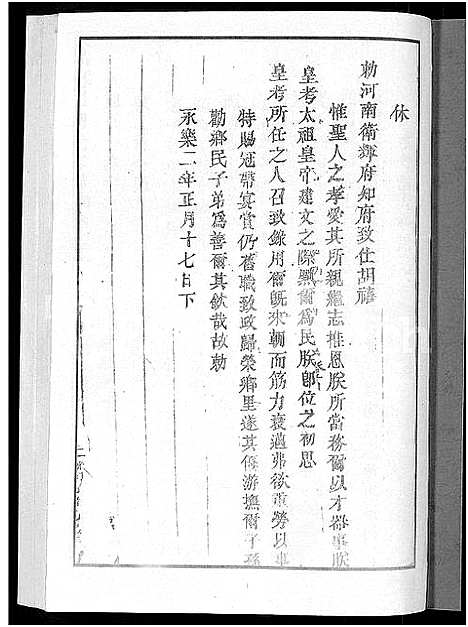 休
勑河南衛輝府知府致仕胡禧
惟聖人之孝愛其所親繼志推恩朕所當務爾以才器事朕
皇考太祖皇帝建文之際黜爾為民朕即位之初思
皇考所任之人召致錄用爾既來朝而筋力衰邁弗欲重勞以事
特賜冠帶宴賞仍舊職致政歸榮鄉里遂其優游撫爾子孫
勸鄉民子弟為善爾其欽哉故勑
永樂二年正月十七日下